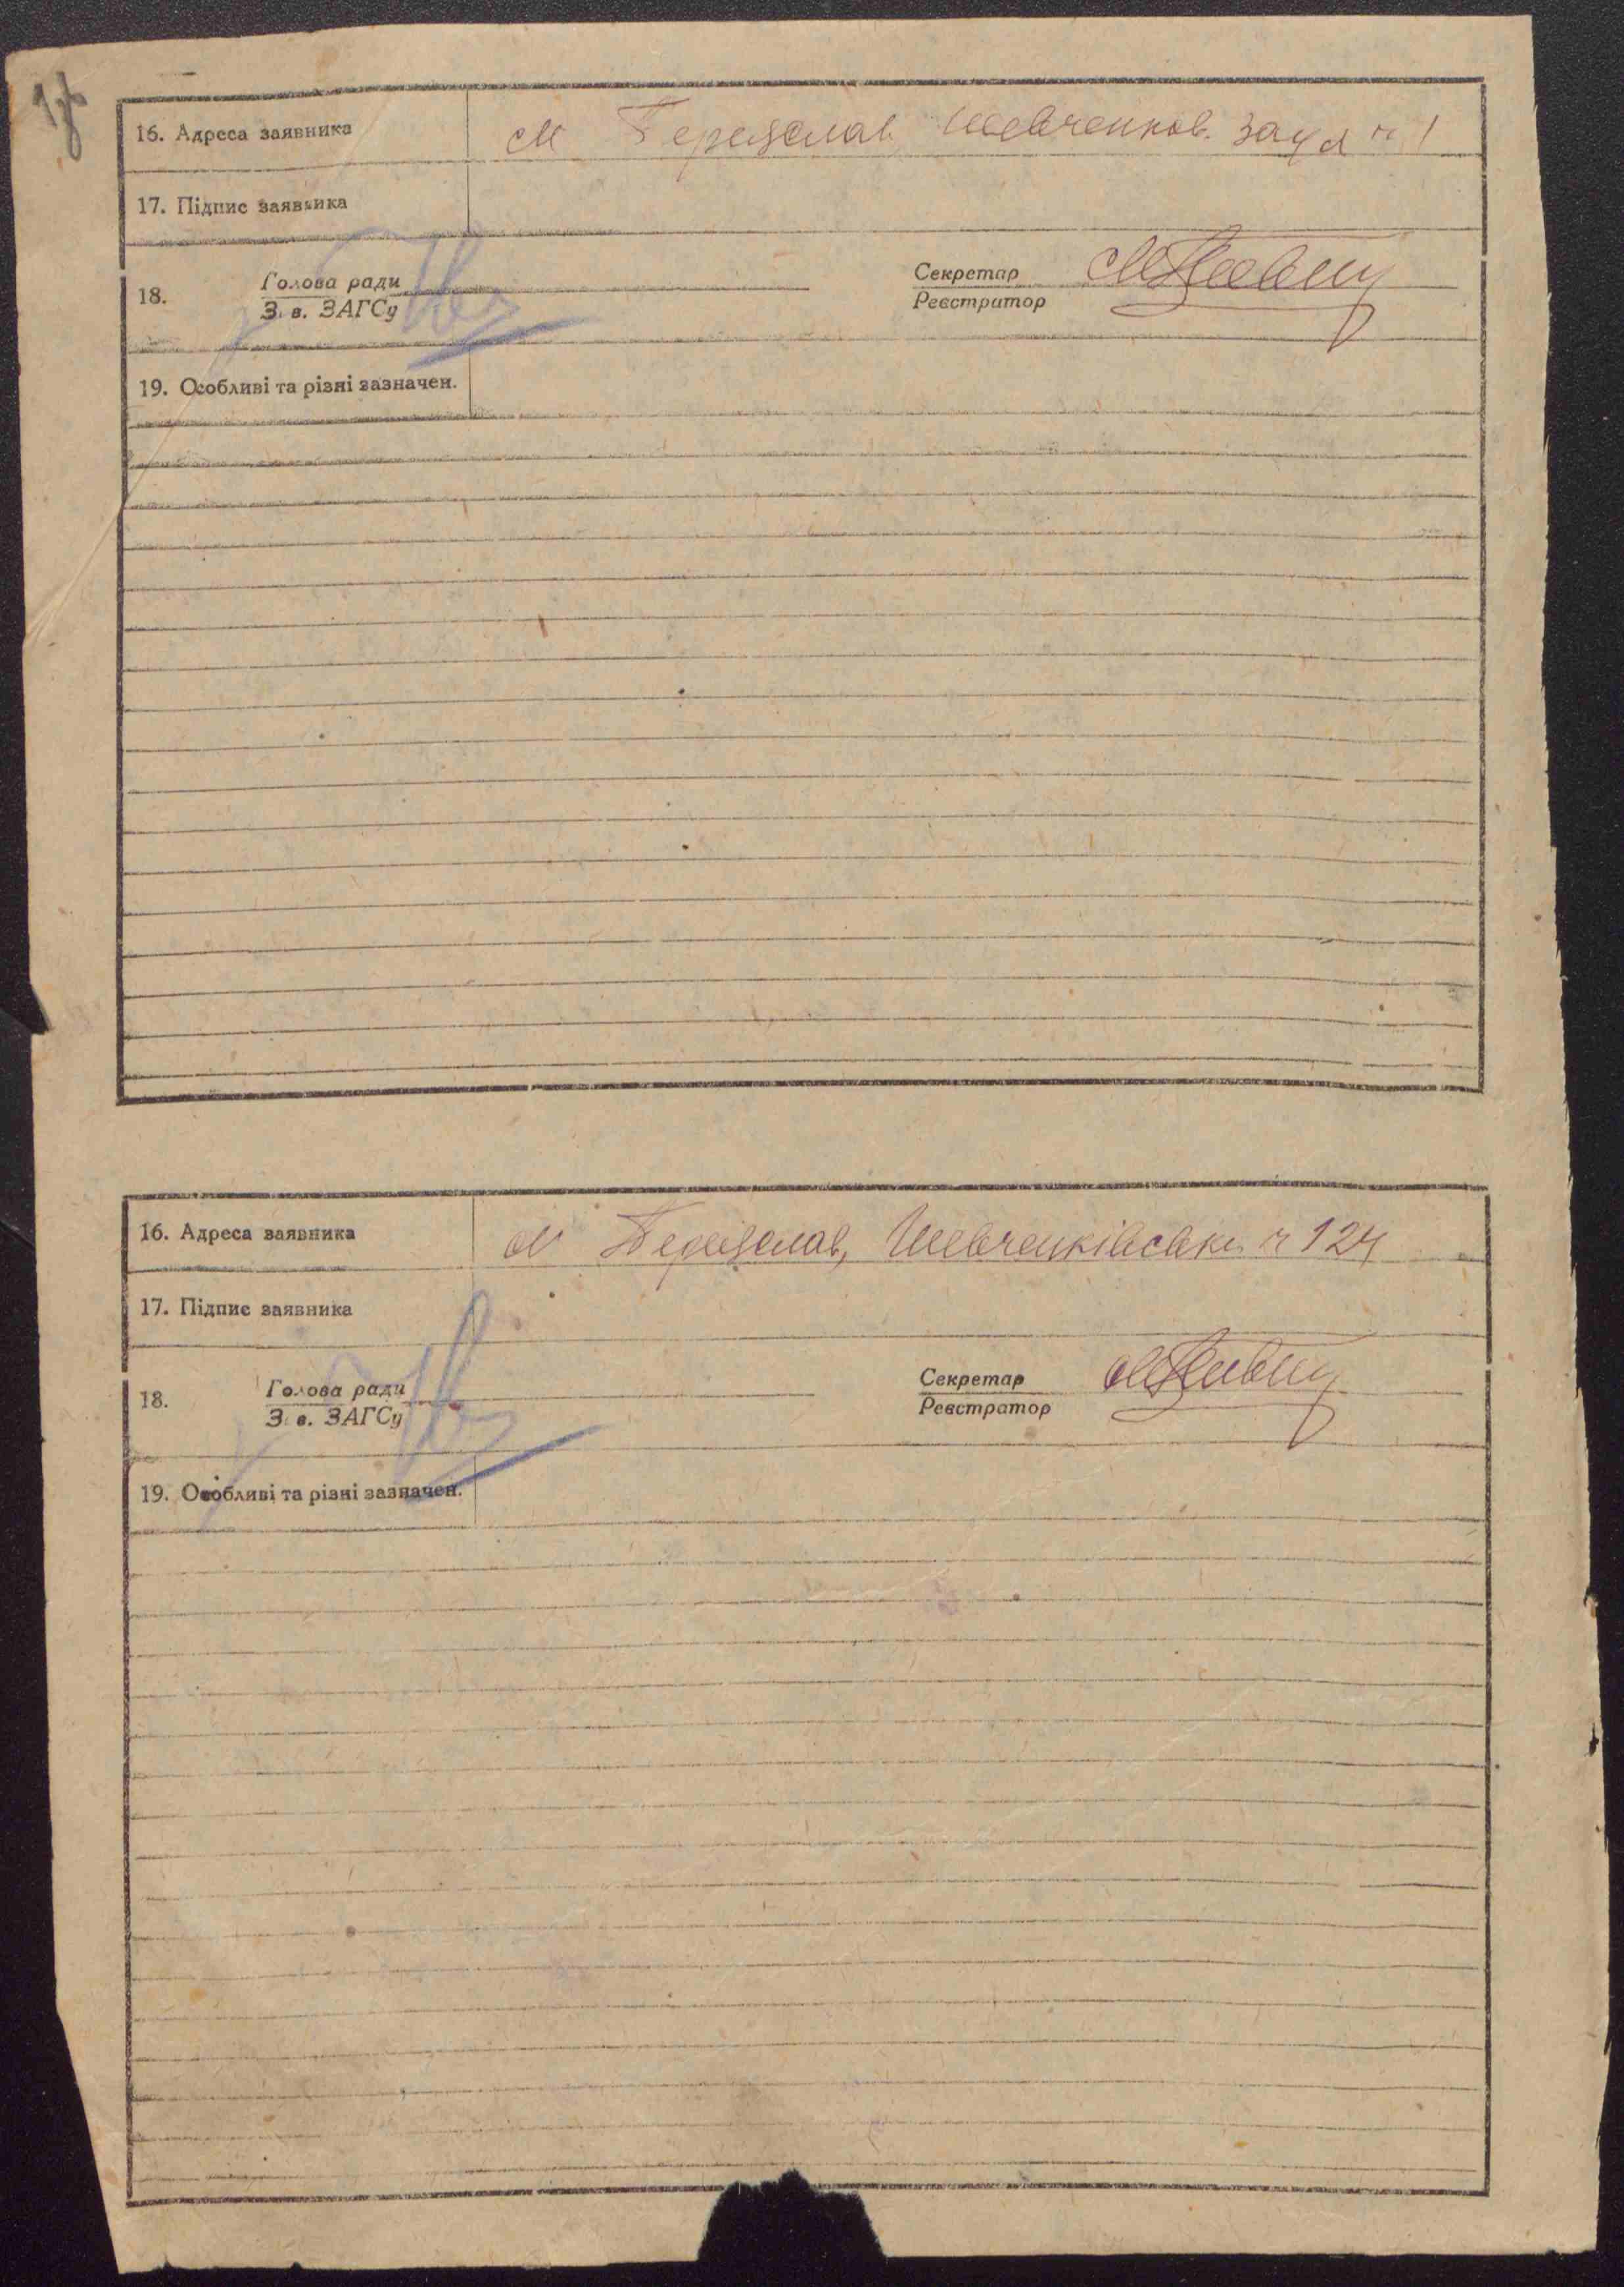 16. Адреса заявника м Переяслав, Шевченков. заул № 1
17. Підпис заявника
18. Голова ради Секретар
Зав. ЗАГСу Реєстратор
19. Особливі та різні зазначен.
16. Адреса заявника м Переяслав, Шевченківська № 124
17. Підпис заявника
18. Голова ради Секретар
Зав. ЗАГСу Реєстратор
19. Особливі та різні зазначен.